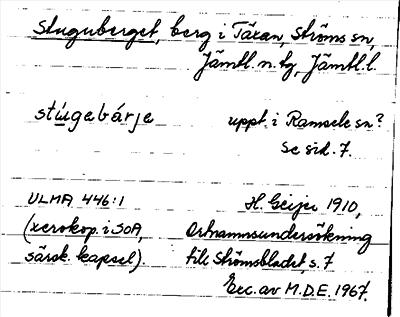 Stuguberget, berg i Täxan, Ströms sn,
Jämtl. n. tg, Jämtl. l.
stúgebárje uppt. i Ramsele sn?
Se sid. 7.
ULMA 446:1 H. Geijer 1910,
(xerokop. i SOA, Ortnamnsundersökning
särsk. kapsel). till Strömsbladet, s. 7
Exc. av M.D.E. 1967.